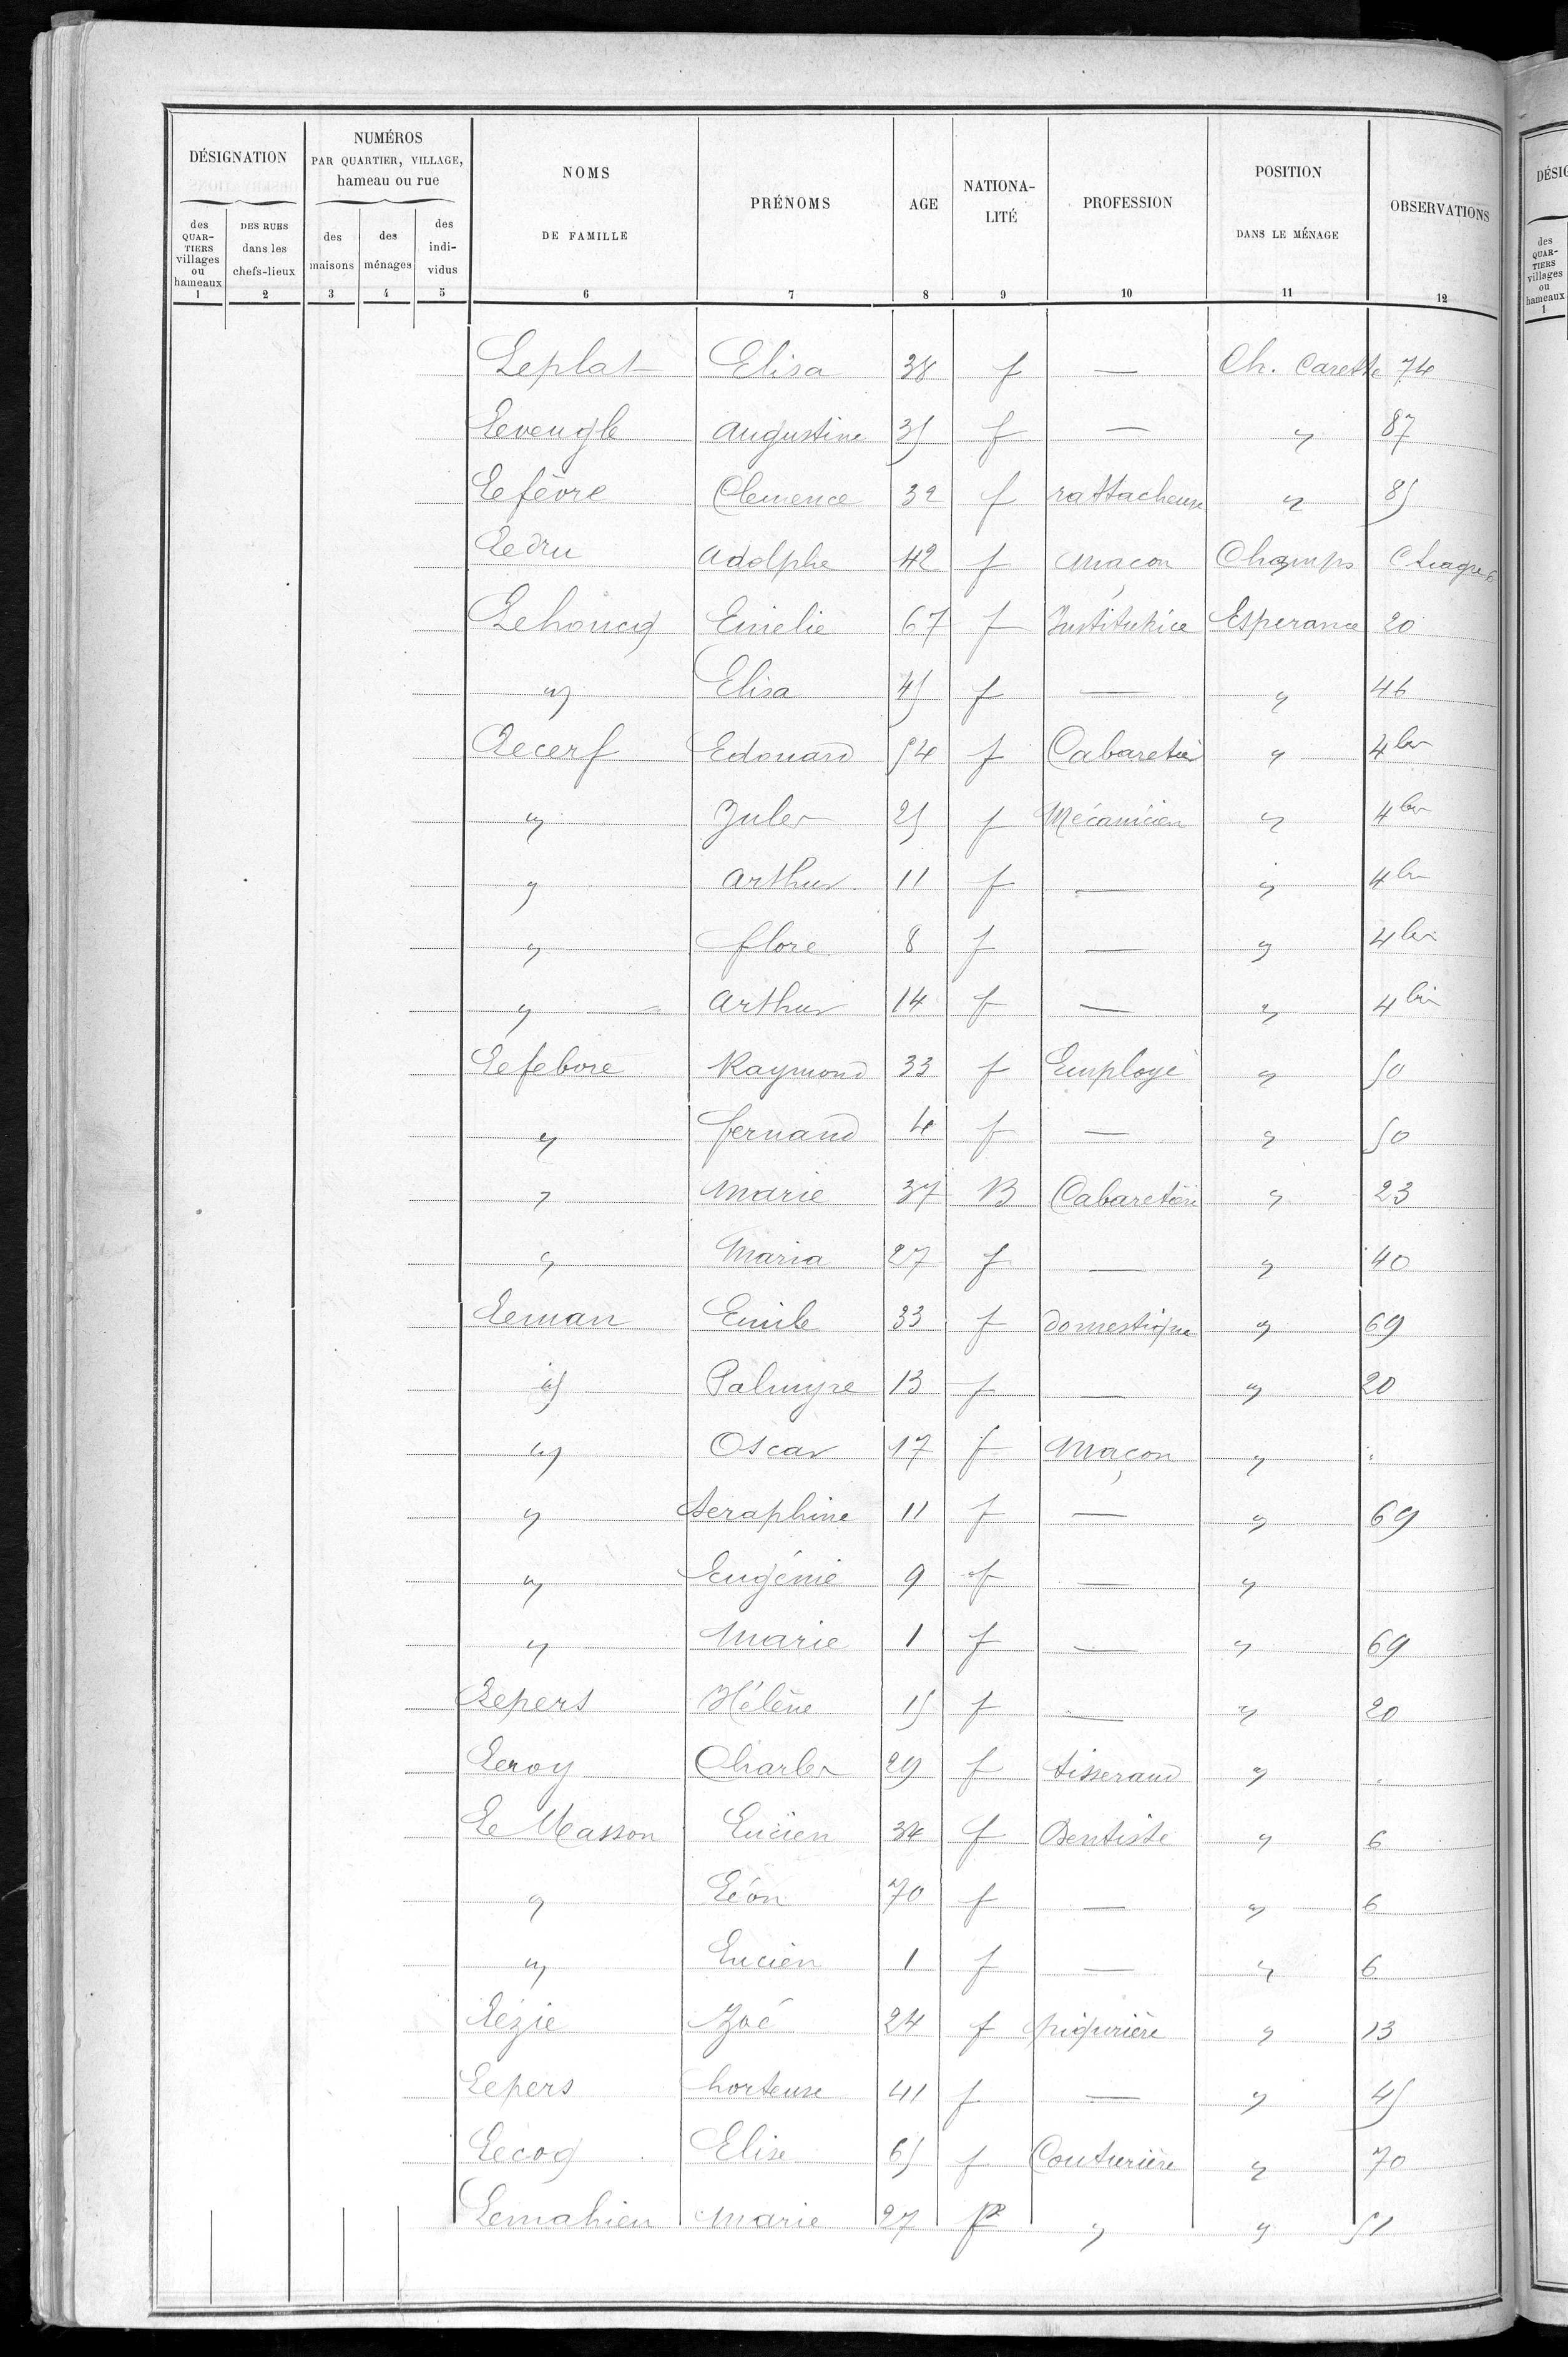 DÉSIGNATION NUMÉROS PAR QUARTIER, VILLAGE, hameau ou rue NOMS DE FAMILLE PRÉNOMS AGE NATIONA-LITÉ PROFESSION POSITION DANS LE MÉNAGE OBSERVATIONS
des QUAR-TIERS villages ou hameaux DES RUES dans les chefs-lieux des maisons des ménages des indi-vidus
1 2 3 4 5 6 7 8 9 10 11 12
Leplat Elisa 38 f — Ch. Carette 74
Leveugle Augustine 35 f — " 87
Lefèvre Clemence 32 f rattacheuse " 85
Ledru Adolphe 42 f Maçon Champs
Lehoucq Emelie 67 f Institutrice Esperance 20
" Elisa 45 f — " 46
Lecerf Edouard 54 f Cabaretier " 4 bis
" Jules 25 f Mécanicien " 4 bis
" Arthur 11 f — " 4 bis
" flore 8 f — " 4 bis
" Arthur 14 f — " 4 bis
Lefebvre Raymond 33 f Employé " 50
" fernand 4 f — " 50
" Marie 37 B Cabaretière " 23
" Maria 27 f — " 40
Leman Emile 33 f domestique " 69
" Palmyre 13 f — " 20
" Oscar 17 f Maçon "
" Seraphine 11 f — " 69
" Eugénie 9 f — "
" Marie 1 f — " 69
Lepers Hélène 15 f — " 20
Leroy Charles 29 f tisserand "
Le Masson Lucien 34 f Dentiste " 6
" Léon 70 f — " 6
" Lucien 1 f — " 6
Lézie Zoé 24 f piqurière " 13
Lepers hortense 41 f — " 45
Lecoq Elise 65 f Couturière " 70
Lemahieu Marie 27 f " " 51
DÉSIG
des QUAR-TIERS villages ou hameaux
1